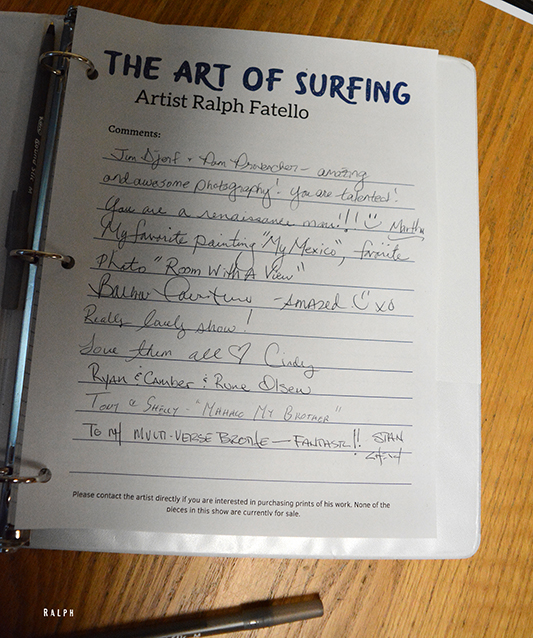 THE ART OF SURFING
Artist Ralph Fatello
Comments:
Jim & Pam – amazing
and awesome photography! You are talented!
You are a renaissance man!!! Martha
My favorite painting "My Mexico", favorite
photo "Room With A View"
– AMAZED XO
Really lovely show!
Love them all ♡ Cindy
Ryan & Camber & Rune Olsen
Tony & Shelly - "MAHALO MY BROTHER"
TO MY MULTI-VERSE – !! STAN
Please contact the artist directly if you are interested in purchasing prints of his work. None of the
pieces in this show are currently for sale.
RALPH